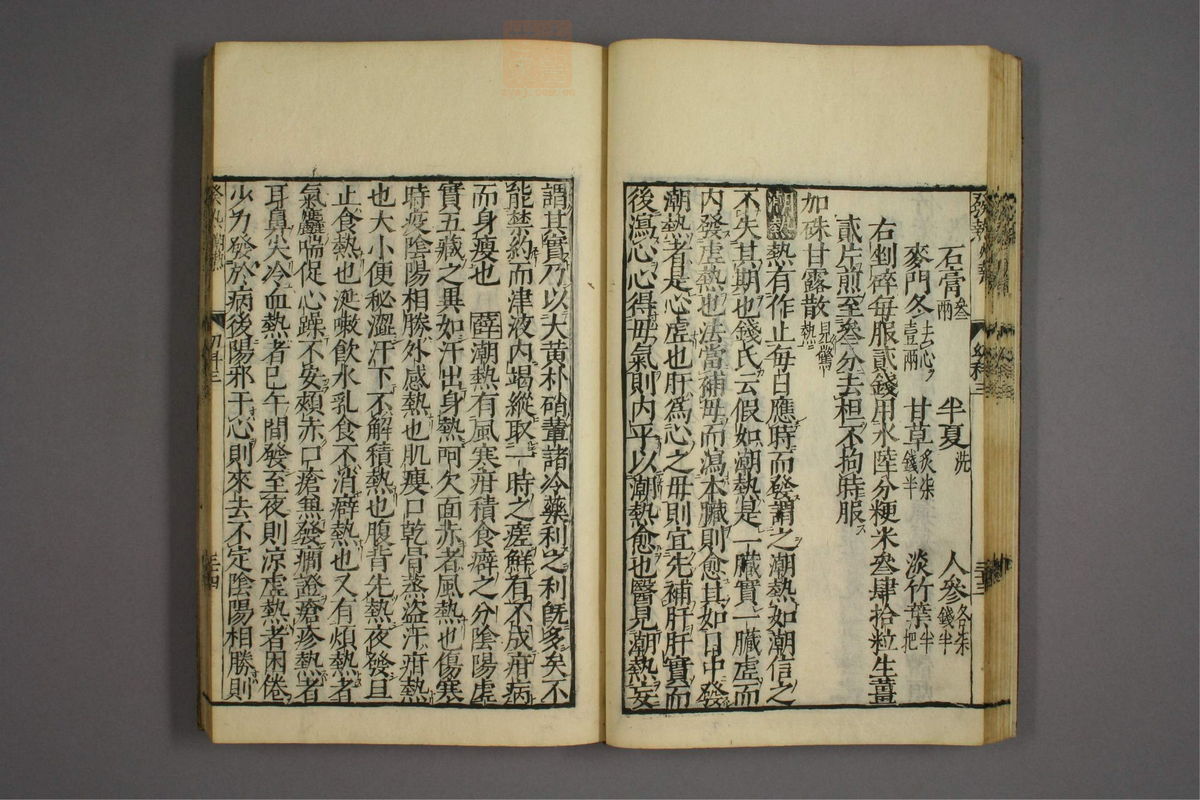 石膏叁兩 半夏洗 人參各朱錢半
麥門冬去心壹兩 甘草炙朱錢半 淡竹葉半把
右剉碎每服貳錢用水陸分粳米叁肆拾粒生薑
貳片煎至叁分去柤不拘時服
加硃甘露散見驚熱
潮熱熱有作止每日應時而發謂之潮熱如潮信之
不失其期也錢氏云假如潮熱是一臟實一臟虛而
内發虛熱也法當補母而瀉本臟則愈其如日中發
潮熱者是心虛也肝爲心之母則宜先補肝肝實而
後瀉心心得母氣則内平以潮熱愈也醫見潮熱妄
謂其實乃以大黄朴硝輩諸冷藥利之利旣多矣不
能禁約而津液内竭縱取一時之瘥鮮有不成疳病
而身瘦也 薛潮熱有風寒疳積食癖之分陰陽虛
實五藏之異如汗出身熱呵欠面赤者風熱也傷寒
時疫陰陽相勝外感熱也肌瘦口乾骨蒸盗汗疳熱
也大小便秘澀汗下不解積熱也腹背先熱夜發旦
止食熱也涎嗽飲水乳食不消癖熱也又有煩熱者
氣麤喘促心躁不安頰赤口瘡無發癇證瘡疹熱者
耳鼻尖冷血熱者巳午間發至夜則涼虛熱者困倦
少力發於病後陽邪干心則來去不定陰陽相勝則